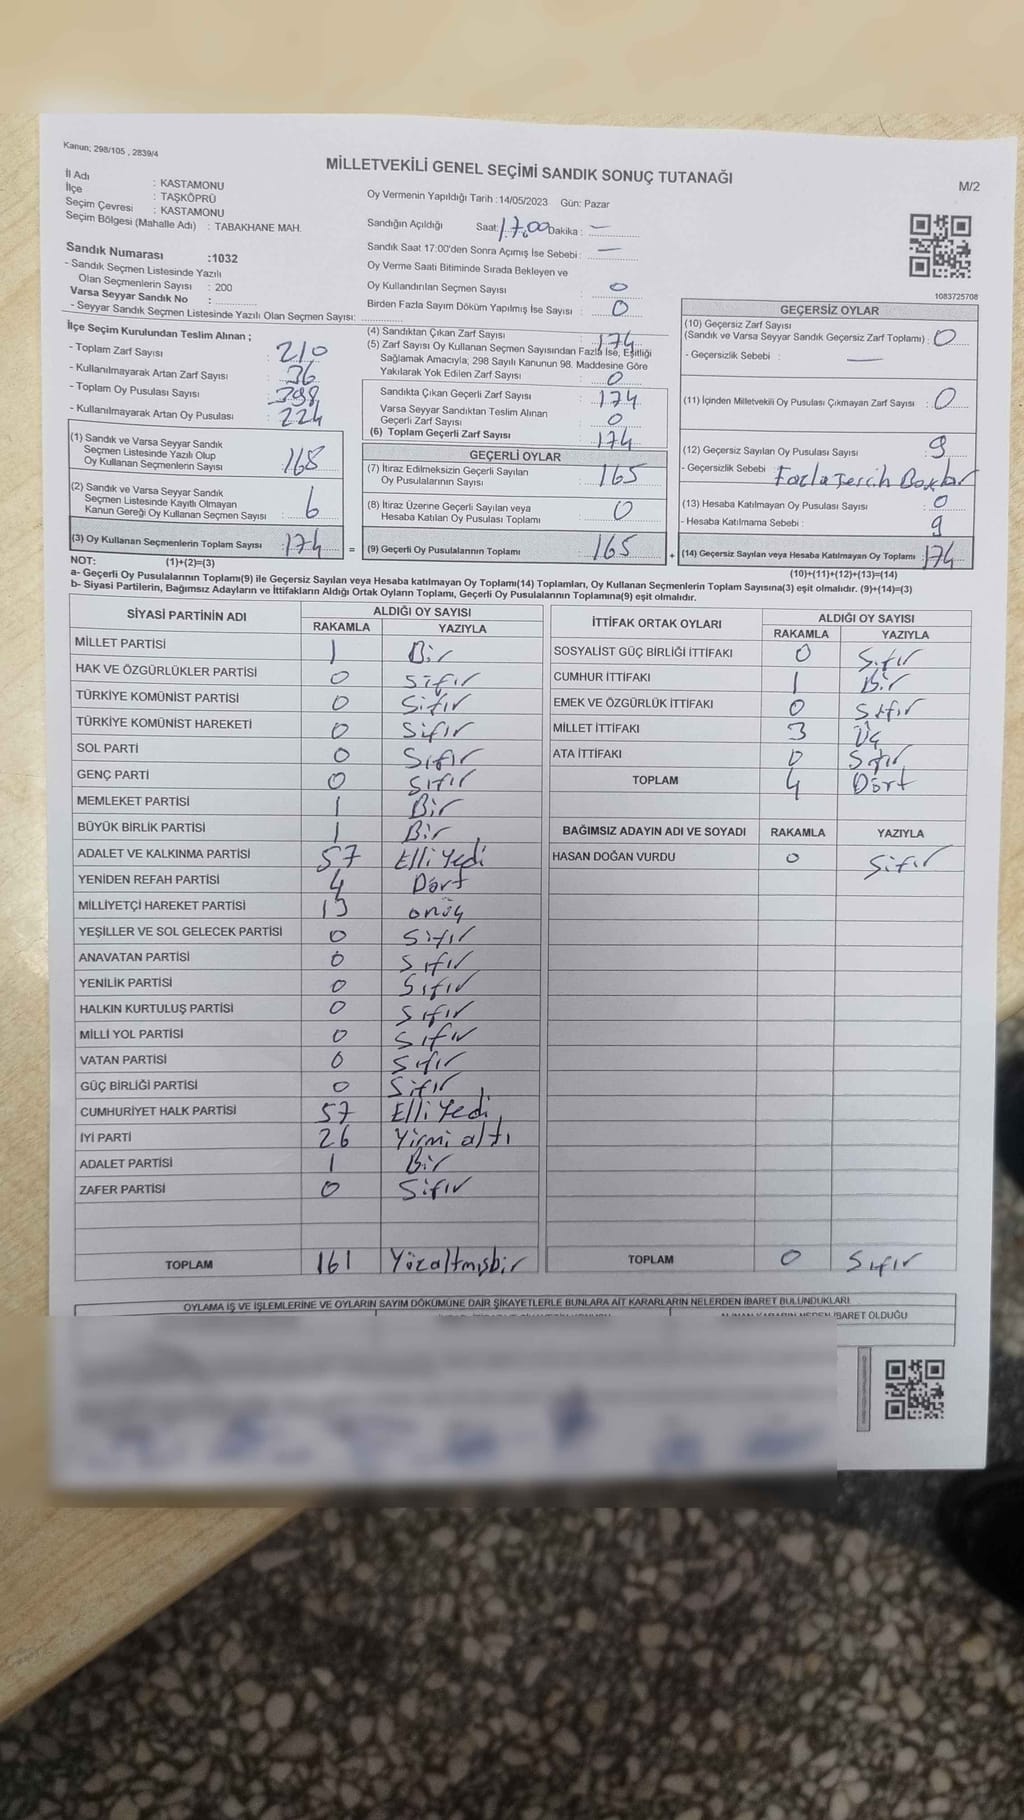 Kanun; 298/105 , 2839/4
MİLLETVEKİLİ GENEL SEÇİMİ SANDIK SONUÇ TUTANAĞI
M/2
İl Adı : KASTAMONU
İlçe : TAŞKÖPRÜ
Seçim Çevresi : KASTAMONU
Seçim Bölgesi (Mahalle Adı) : TABAKHANE MAH.
Sandık Numarası :1032
- Sandık Seçmen Listesinde Yazılı
Olan Seçmenlerin Sayısı : 200
Varsa Seyyar Sandık No :
- Seyyar Sandık Seçmen Listesinde Yazılı Olan Seçmen Sayısı:
Oy Vermenin Yapıldığı Tarih :14/05/2023 Gün: Pazar
Sandığın Açıldığı Saat: 17.00 Dakika : —
Sandık Saat 17:00'den Sonra Açımış İse Sebebi : —
Oy Verme Saati Bitiminde Sırada Bekleyen ve
Oy Kullandırılan Seçmen Sayısı : 0
Birden Fazla Sayım Döküm Yapılmış İse Sayısı : 0
1083725708
İlçe Seçim Kurulundan Teslim Alınan ;
- Toplam Zarf Sayısı : 210
- Kullanılmayarak Artan Zarf Sayısı : 36
- Toplam Oy Pusulası Sayısı : 398
- Kullanılmayarak Artan Oy Pusulası : 224
(1) Sandık ve Varsa Seyyar Sandık
Seçmen Listesinde Yazılı Olup
Oy Kullanan Seçmenlerin Sayısı : 168
(2) Sandık ve Varsa Seyyar Sandık
Seçmen Listesinde Kayıtlı Olmayan
Kanun Gereği Oy Kullanan Seçmen Sayısı : 6
(3) Oy Kullanan Seçmenlerin Toplam Sayısı : 174 =
(4) Sandıktan Çıkan Zarf Sayısı : 174
(5) Zarf Sayısı Oy Kullanan Seçmen Sayısından Fazla İse, Eşitliği
Sağlamak Amacıyla; 298 Sayılı Kanunun 98. Maddesine Göre
Yakılarak Yok Edilen Zarf Sayısı : 0
Sandıkta Çıkan Geçerli Zarf Sayısı : 174
Varsa Seyyar Sandıktan Teslim Alınan
Geçerli Zarf Sayısı : 0
(6) Toplam Geçerli Zarf Sayısı : 174
GEÇERLİ OYLAR
(7) İtiraz Edilmeksizin Geçerli Sayılan
Oy Pusulalarının Sayısı : 165
(8) İtiraz Üzerine Geçerli Sayılan veya
Hesaba Katılan Oy Pusulası Toplamı : 0
(9) Geçerli Oy Pusulalarının Toplamı : 165 +
GEÇERSİZ OYLAR
(10) Geçersiz Zarf Sayısı
(Sandık ve Varsa Seyyar Sandık Geçersiz Zarf Toplamı) : 0
- Geçersizlik Sebebi : —
(11) İçinden Milletvekili Oy Pusulası Çıkmayan Zarf Sayısı : 0
(12) Geçersiz Sayılan Oy Pusulası Sayısı : 9
- Geçersizlik Sebebi : Fazla Tercih
(13) Hesaba Katılmayan Oy Pusulası Sayısı : 0
- Hesaba Katılmama Sebebi : 9
(14) Geçersiz Sayılan veya Hesaba Katılmayan Oy Toplamı : 174
NOT: (1)+(2)=(3)
(10)+(11)+(12)+(13)=(14)
a- Geçerli Oy Pusulalarının Toplamı(9) ile Geçersiz Sayılan veya Hesaba katılmayan Oy Toplamı(14) Toplamları, Oy Kullanan Seçmenlerin Toplam Sayısına(3) eşit olmalıdır. (9)+(14)=(3)
b- Siyasi Partilerin, Bağımsız Adayların ve İttifakların Aldığı Ortak Oyların Toplamı, Geçerli Oy Pusulalarının Toplamına(9) eşit olmalıdır.
SİYASİ PARTİNİN ADI ALDIĞI OY SAYISI
RAKAMLA YAZIYLA
MİLLET PARTİSİ 1 Bir
HAK VE ÖZGÜRLÜKLER PARTİSİ 0 Sıfır
TÜRKİYE KOMÜNİST PARTİSİ 0 Sıfır
TÜRKİYE KOMÜNİST HAREKETİ 0 Sıfır
SOL PARTİ 0 Sıfır
GENÇ PARTİ 0 Sıfır
MEMLEKET PARTİSİ 1 Bir
BÜYÜK BİRLİK PARTİSİ 1 Bir
ADALET VE KALKINMA PARTİSİ 57 Elli Yedi
YENİDEN REFAH PARTİSİ 4 Dört
MİLLİYETÇİ HAREKET PARTİSİ 13 onüç
YEŞİLLER VE SOL GELECEK PARTİSİ 0 Sıfır
ANAVATAN PARTİSİ 0 Sıfır
YENİLİK PARTİSİ 0 Sıfır
HALKIN KURTULUŞ PARTİSİ 0 Sıfır
MİLLİ YOL PARTİSİ 0 Sıfır
VATAN PARTİSİ 0 Sıfır
GÜÇ BİRLİĞİ PARTİSİ 0 Sıfır
CUMHURİYET HALK PARTİSİ 57 Elli Yedi
İYİ PARTİ 26 Yirmi altı
ADALET PARTİSİ 1 Bir
ZAFER PARTİSİ 0 Sıfır
TOPLAM 161 Yüzaltmışbir
İTTİFAK ORTAK OYLARI ALDIĞI OY SAYISI
RAKAMLA YAZIYLA
SOSYALİST GÜÇ BİRLİĞİ İTTİFAKI 0 Sıfır
CUMHUR İTTİFAKI 1 Bir
EMEK VE ÖZGÜRLÜK İTTİFAKI 0 Sıfır
MİLLET İTTİFAKI 3 Üç
ATA İTTİFAKI 0 Sıfır
TOPLAM 4 Dört
BAĞIMSIZ ADAYIN ADI VE SOYADI RAKAMLA YAZIYLA
HASAN DOĞAN VURDU 0 Sıfır
TOPLAM 0 Sıfır
OYLAMA İŞ VE İŞLEMLERİNE VE OYLARIN SAYIM DÖKÜMÜNE DAİR ŞİKAYETLERLE BUNLARA AİT KARARLARIN NELERDEN İBARET BULUNDUKLARI
İBARET OLDUĞU